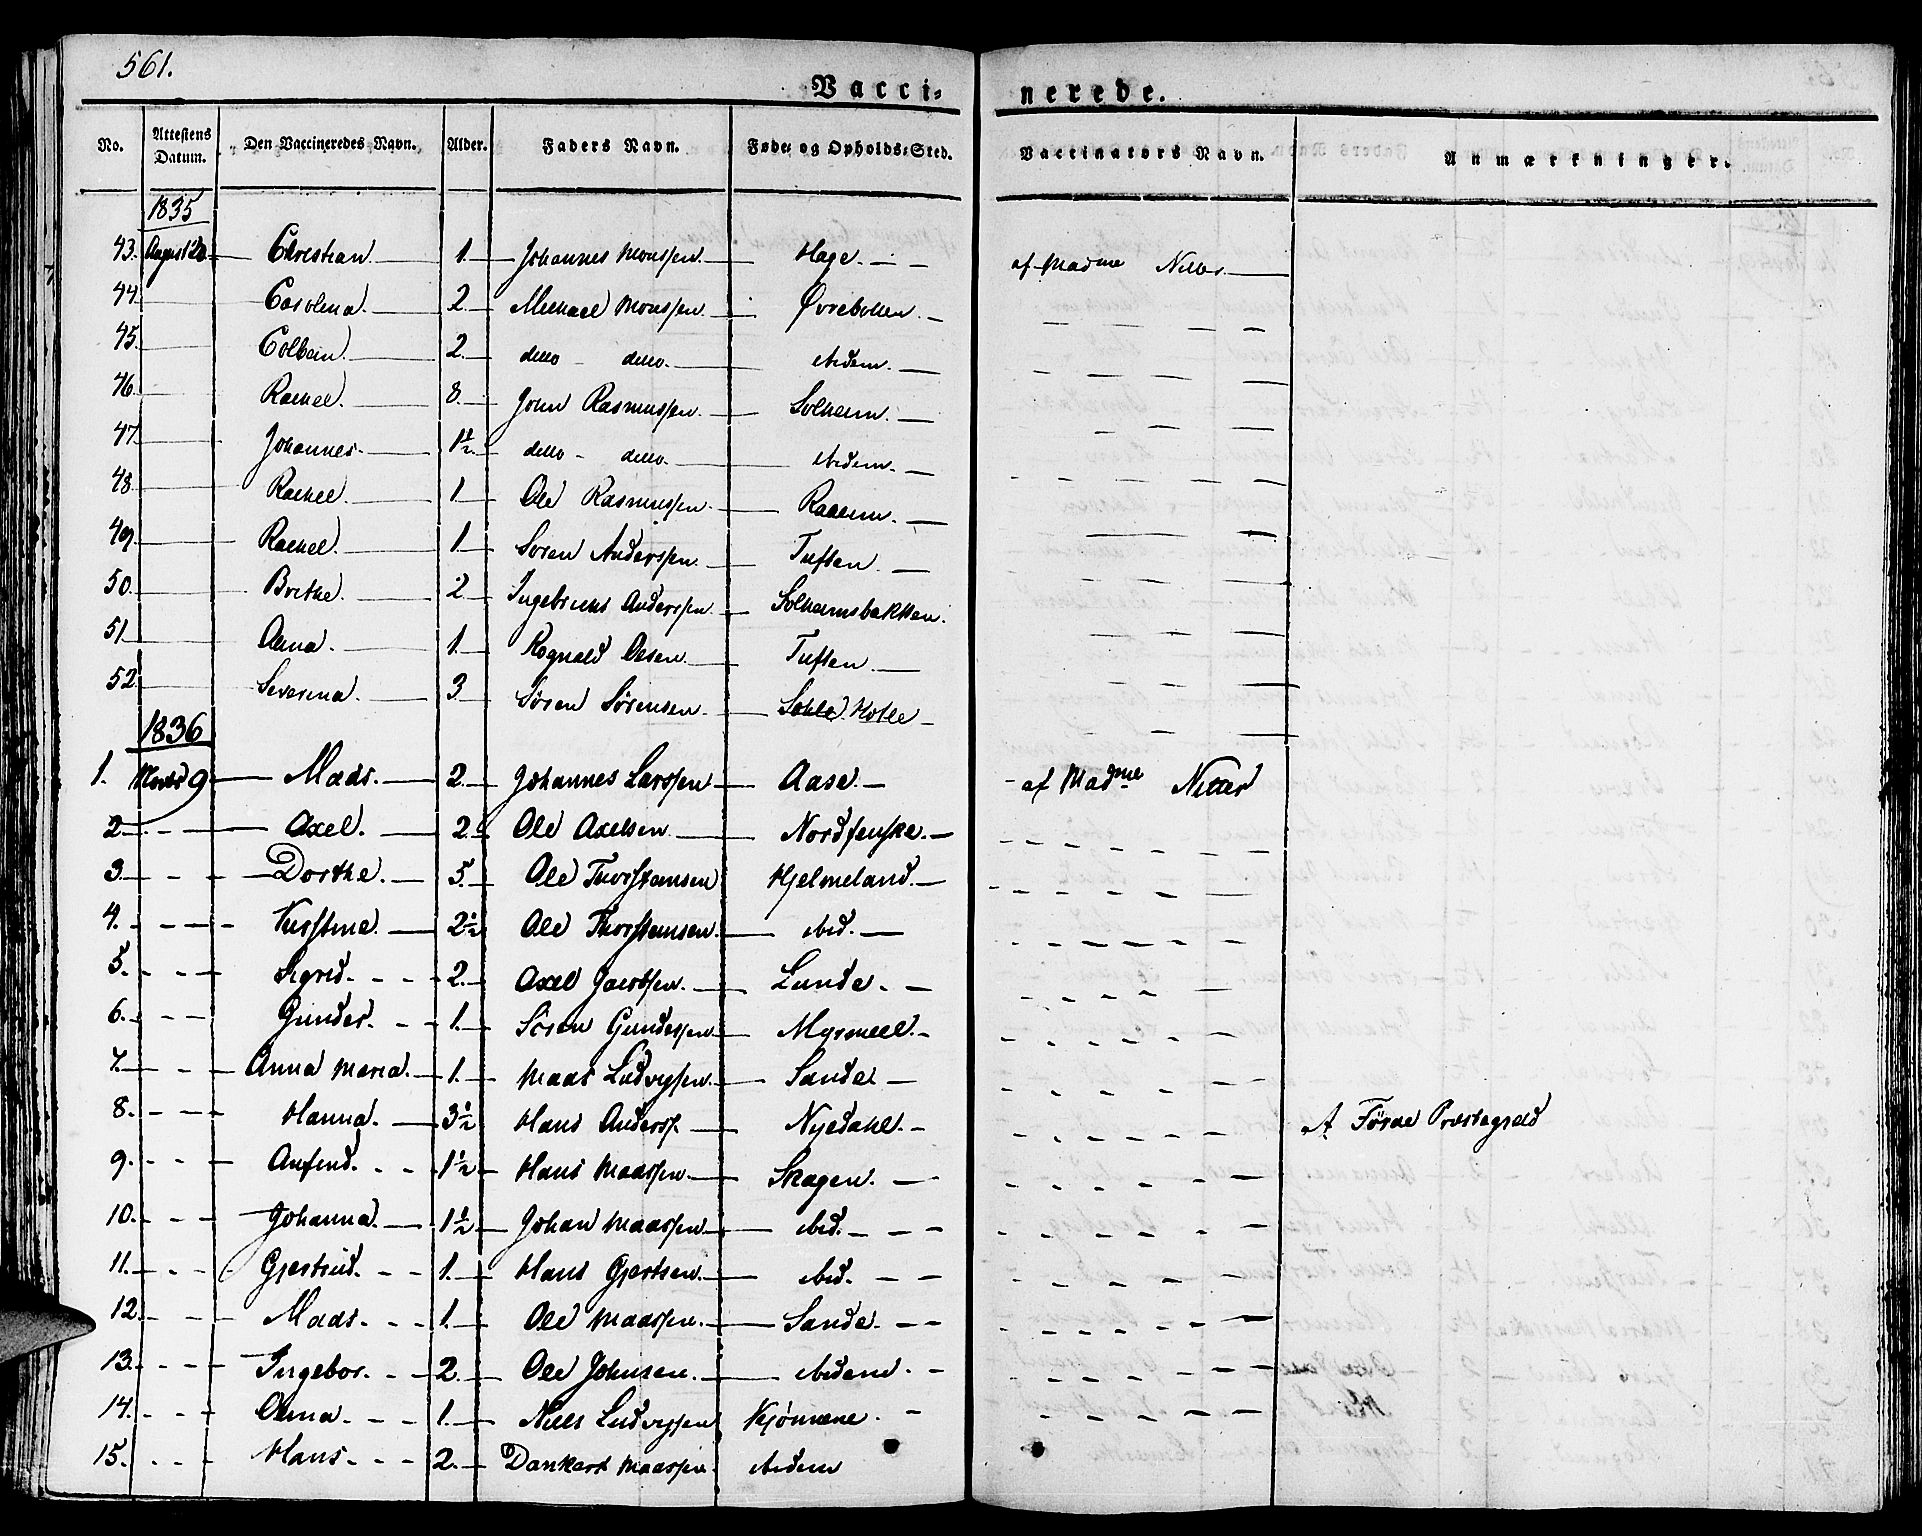 561.
Vacci- nerede.
No. Attestens Datum. Den Vaccineredes Navn. Alder. Faders Navn. Føde- og Opholds-Sted. Vaccinateurs Navn. Anmærkninger.
1835
43. August Christian. 1. Johannes Monssen. Hage. af Madme
44 Carolina. 2. Michael Monssen Øvrebotten.
45. Colbein. 2. ditto ditto. ibidem.
46. Rachel. 8. John Rasmussen. Solheim.
47. Johannes. 1½. ditto - ditto. ibidem.
48. Rachel. 1. Ole Rasmussen. Raaeim.
49. Rachel. 1. Soren Anderssen. Tuften.
50. Brithe. 2. Ingebricht Anderssen. Solheimsbakken.
51 Anna. 1. Rognald Olsen. Tuften.
52. Severina. 3. Søren Sørensen. Holle
1836
1. 9 Mads. 2. Johannes Larssen Aase. af Madme
2 Axel. 2. Ole Axelsen. Nordfenske.
3. Dorthe. 5. Ole Thorsteinsen Hjelmeland.
4. Kirstine. 2½ Ole Thorsteinsen. ibid.
5. Sigrid. 2. Axel Jacobsen. Lunde.
6. Gunder. 1. Sören Gunderssen Myrmell.
7. Anna Maria. 1. Maas Ludvigsen. Sande
8. Hanna. 3½ Hans Anderss. Nyedahl. A Förde Præstegield
9. Anfind. 1½ Hans Maassen. Skagen.
10. Johanna. 1½ Johan Maassen ibid.
11. Gjertrud. 1. Hans Gjertsen. ibid.
12. Mads. 1. Ole Maassen. Sande.
13. Ingebor. 2. Ole Johnsen. ibidem.
14. Anna. 1. Niels Ludvigsen Kjönnene.
15. Hans. 2. Dankert Maassen. ibidem